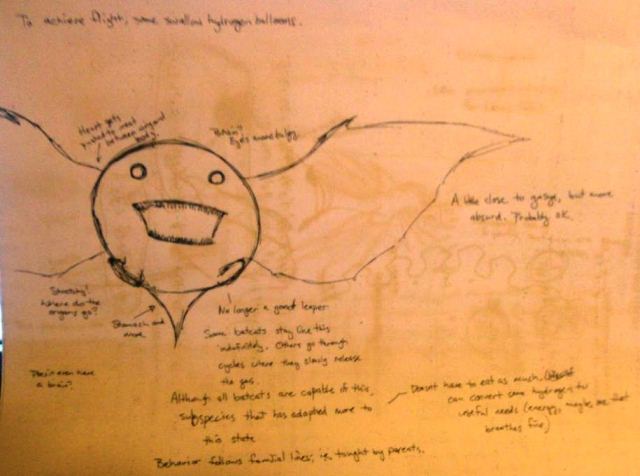 To achieve flight, some swallow hydrogen balloons.
Heart gets
pushed to next
between wing and
body.
"Brain"?
Eyes more bulgy.
A little close to
but more
absurd. Probably ok.
Stretchy!
Where do the
organs go?
Stomach and
more
No longer a good leaper
Some batcats stay like this
indefinitely. Others go through
cycles where they slowly release
the gas.
Doesn't even have
a brain?
Although all batcats are capable of this,
subspecies that has adapted more to
this state
Doesn't have to eat as much,
can convert some hydrogen for
useful needs (energy, maybe one that
breathes fire)
Behavior follows familial lines, ie, taught by parents.